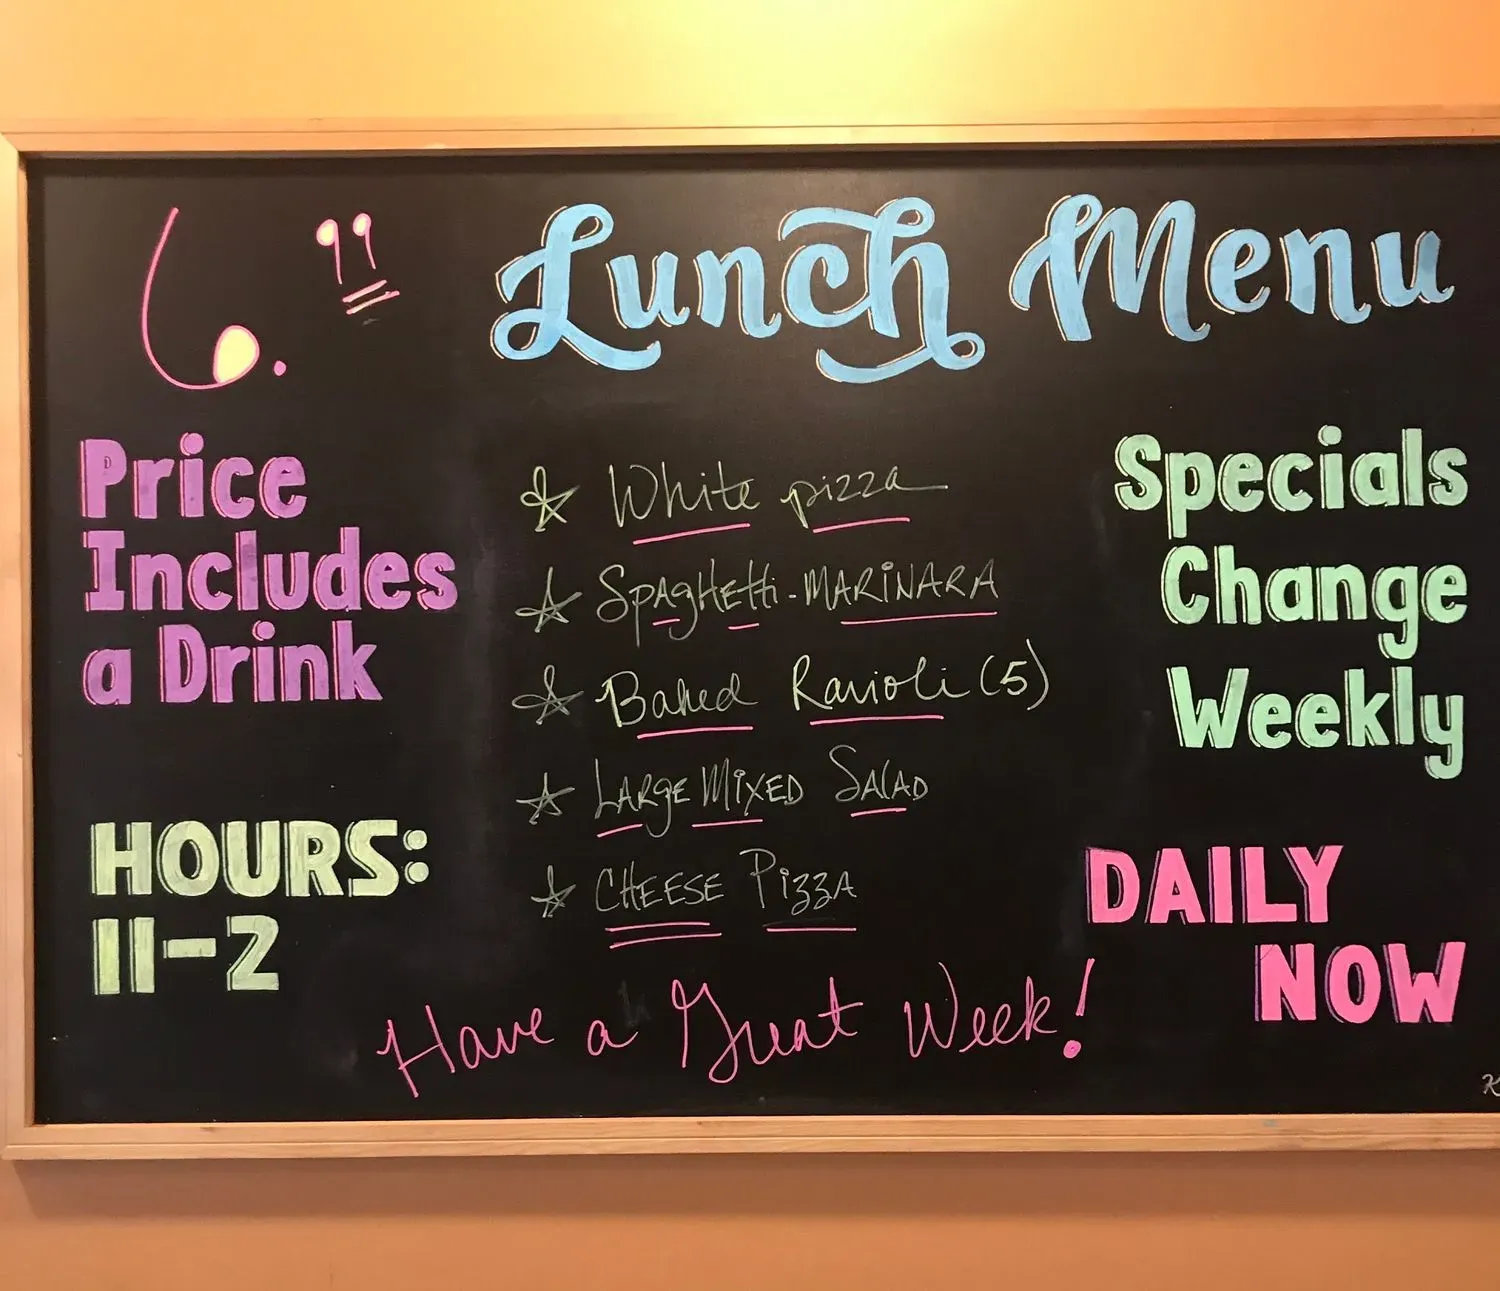 6.99
Lunch Menu
Price
Includes
a Drink
HOURS:
11-2
☆ White pizza
☆ Spaghetti-MARINARA
☆ Baked Ravioli (5)
☆ LARge Mixed SALAD
☆ CHEESE PizzA
Specials
Change
Weekly
DAILY
NOW
Have a Great Week!